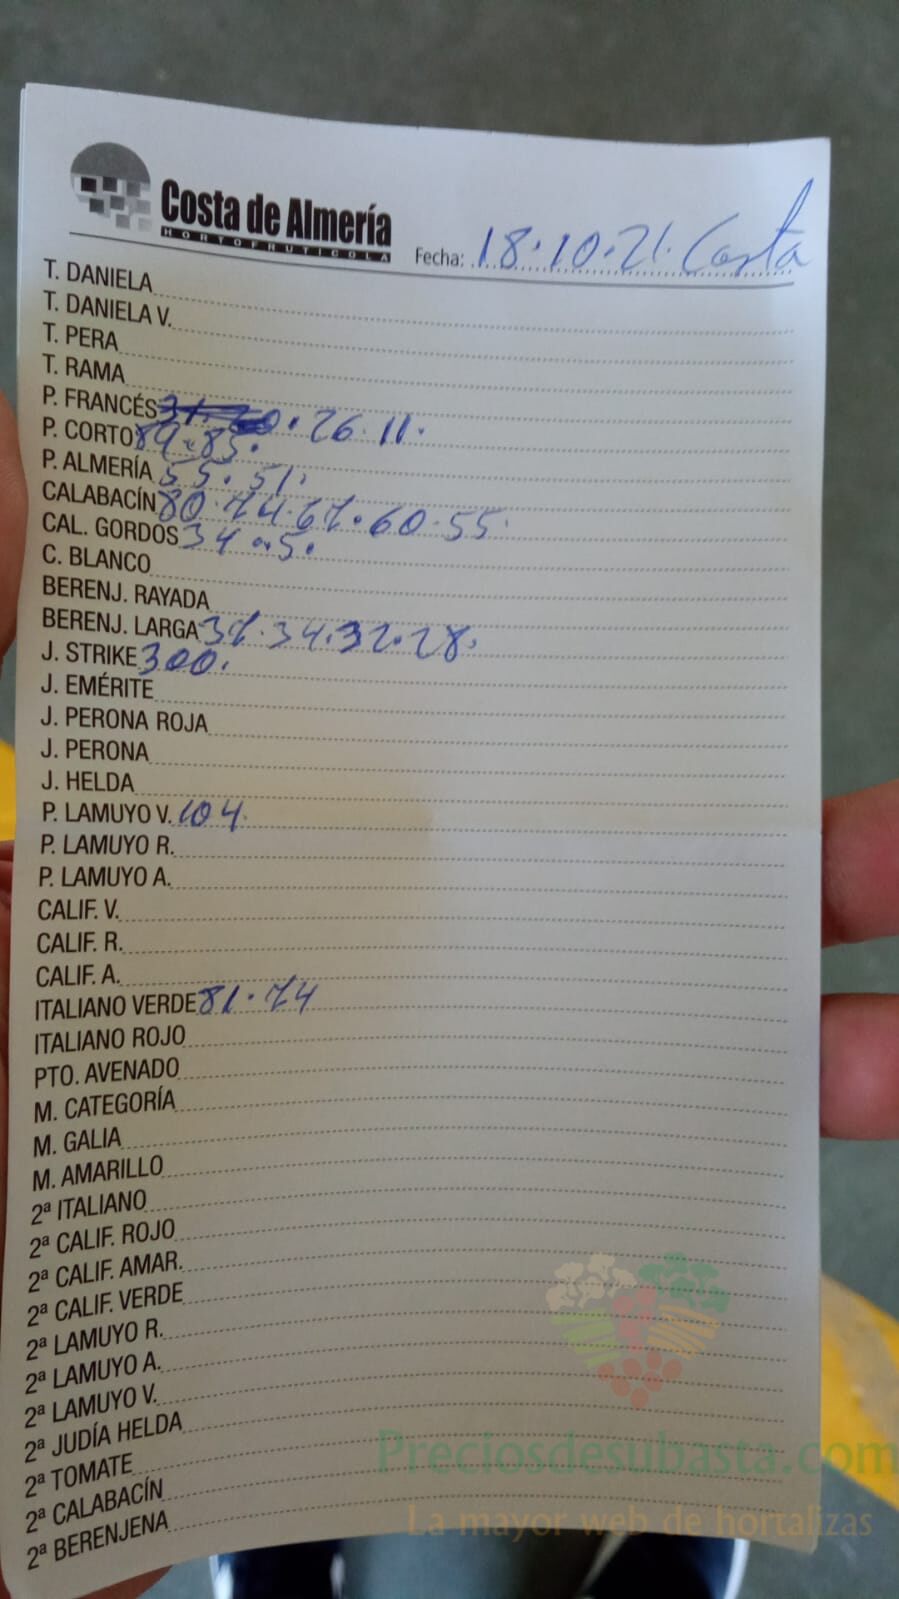 Costa de Almería
HORTOFRUTICOLA
Fecha: 18·10·21· Costa
T. DANIELA
T. DANIELA V.
T. PERA
T. RAMA
P. FRANCÉS · 26·11·
P. CORTO 89 · 85·
P. ALMERÍA 55·51·
CALABACÍN 80·74·67·60·55·
CAL. GORDOS 34 · 5·
C. BLANCO
BERENJ. RAYADA
BERENJ. LARGA 37·34·32·28·
J. STRIKE 300·
J. EMÉRITE
J. PERONA ROJA
J. PERONA
J. HELDA
P. LAMUYO V. 104·
P. LAMUYO R.
P. LAMUYO A.
CALIF. V.
CALIF. R.
CALIF. A.
ITALIANO VERDE 81·74
ITALIANO ROJO
PTO. AVENADO
M. CATEGORÍA
M. GALIA
M. AMARILLO
2ª ITALIANO
2ª CALIF. ROJO
2ª CALIF. AMAR.
2ª CALIF. VERDE
2ª LAMUYO R.
2ª LAMUYO A.
2ª LAMUYO V.
2ª JUDÍA HELDA
2ª TOMATE
2ª CALABACÍN
2ª BERENJENA
Preciosdesubasta.com
La mayor web de hortalizas